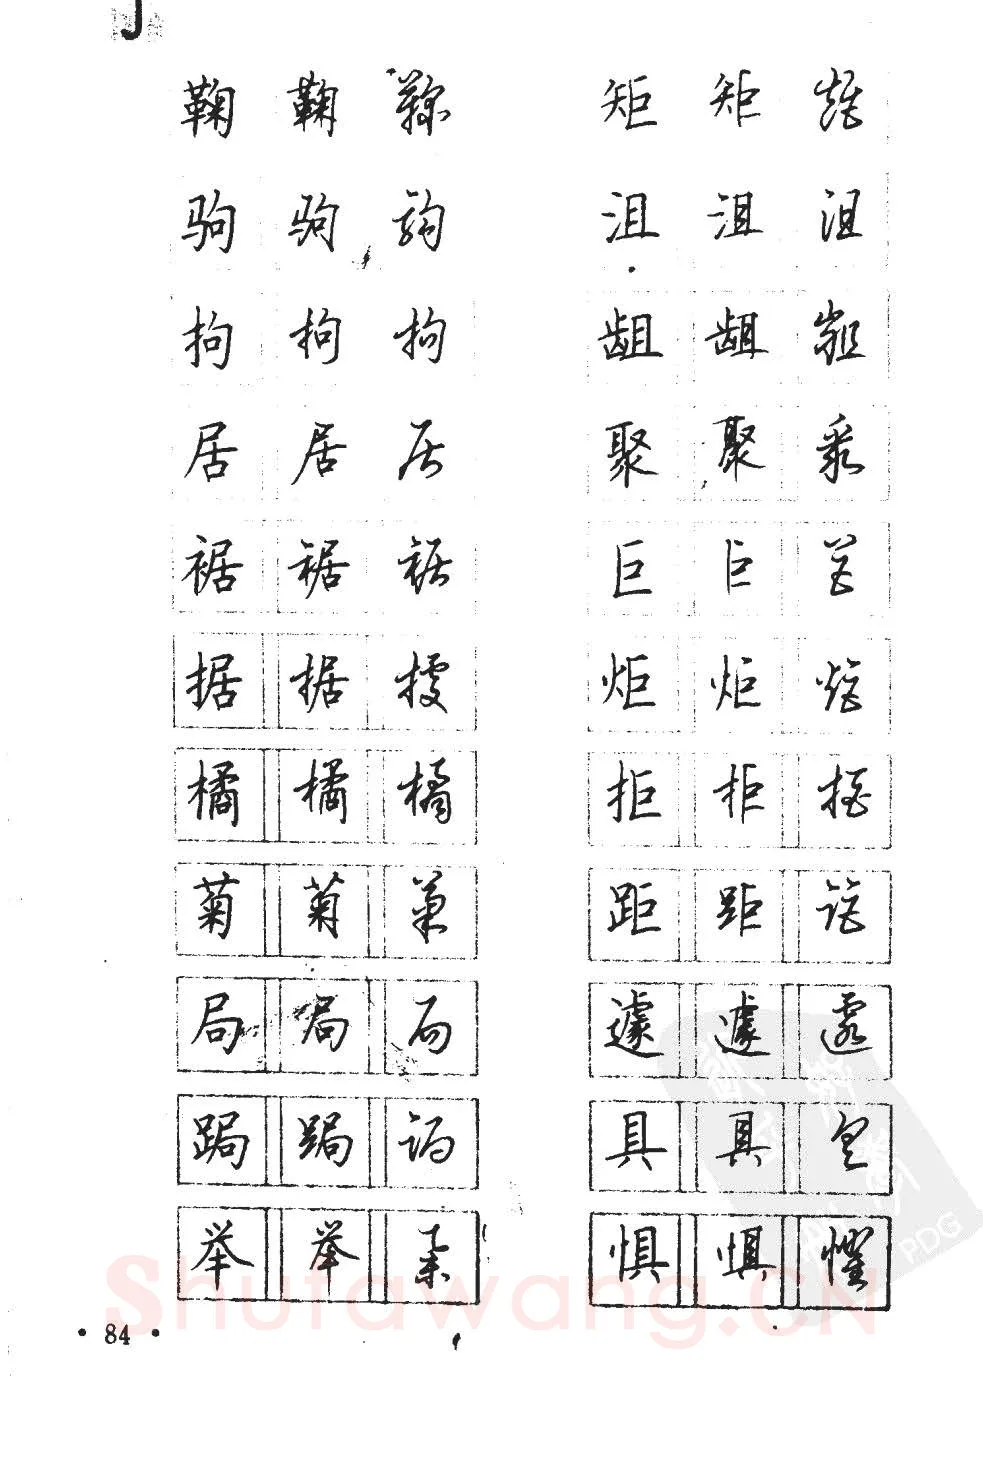 J
鞠 鞠 鞠
驹 驹 驹
拘 拘 拘
居 居 居
裾 裾 裾
据 据 据
橘 橘 橘
菊 菊 菊
局 局 局
跼 跼 跼
举 举 举
矩 矩 矩
沮 沮 沮
龃 龃 龃
聚 聚 聚
巨 巨 巨
炬 炬 炬
拒 拒 拒
距 距 距
遽 遽 遽
具 具 具
惧 惧 惧
• 84 •
Shufawang.CN
PDG